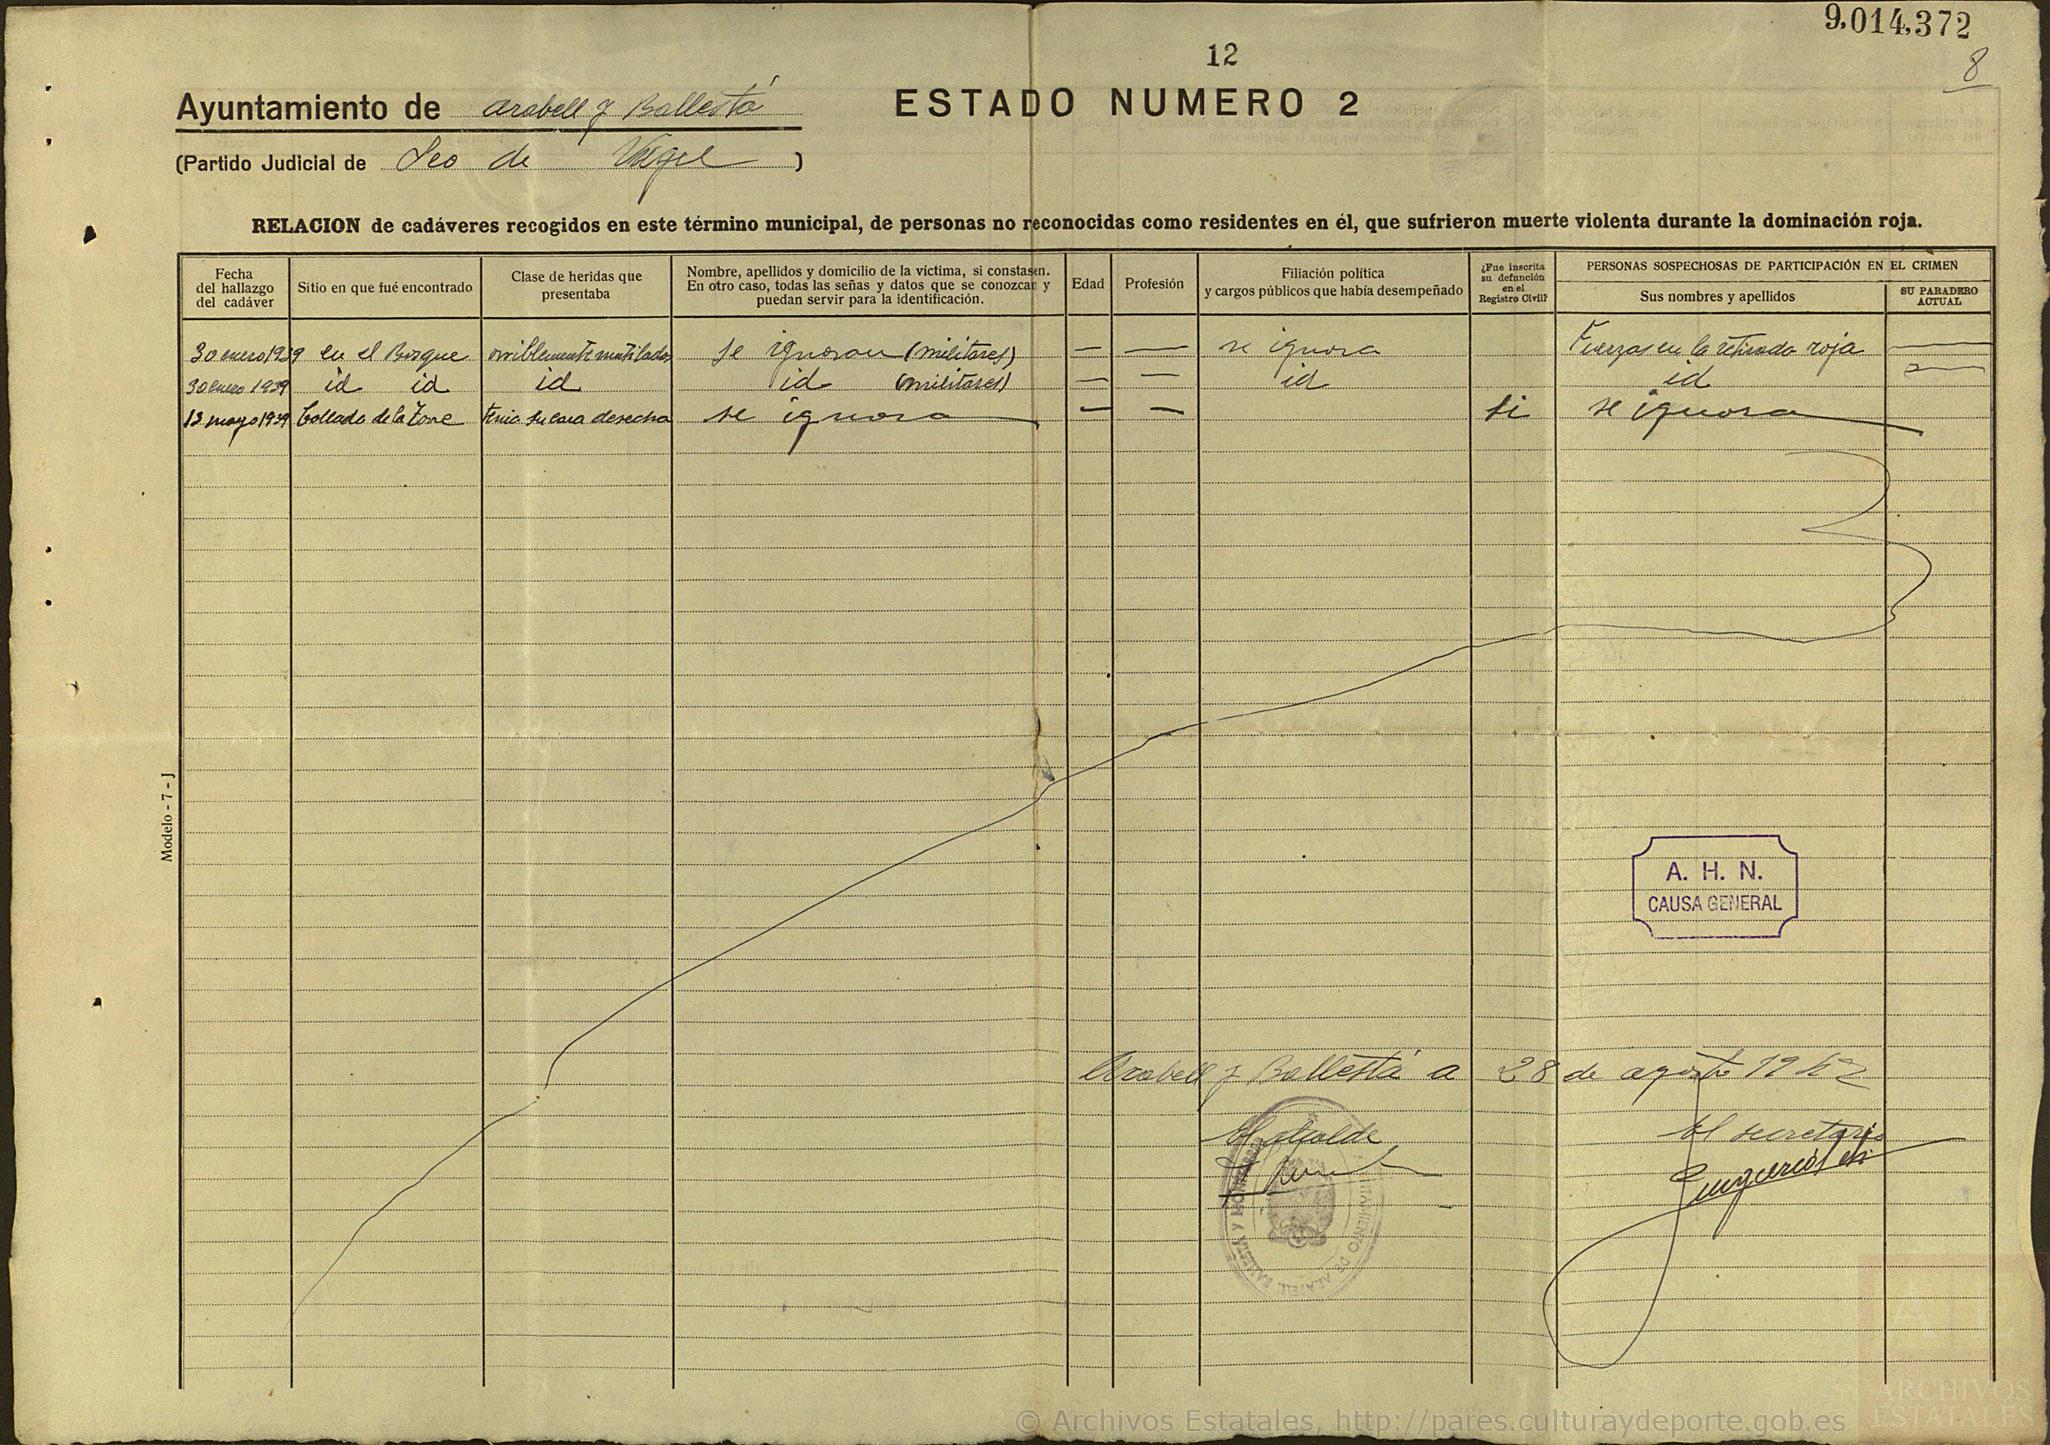 9.014,372
12
8
Ayuntamiento de Arabell y Ballestá
ESTADO NUMERO 2
(Partido Judicial de Seo de Urgel)
RELACION de cadáveres recogidos en este término municipal, de personas no reconocidas como residentes en él, que sufrieron muerte violenta durante la dominación roja.
Fecha del hallazgo del cadáver
Sitio en que fué encontrado
Clase de heridas que presentaba
Nombre, apellidos y domicilio de la víctima, si constasen. En otro caso, todas las señas y datos que se conozcan y puedan servir para la identificación.
Edad
Profesión
Filiación política y cargos públicos que había desempeñado
¿Fue inscrita su defunción en el Registro Civil?
PERSONAS SOSPECHOSAS DE PARTICIPACIÓN EN EL CRIMEN
Sus nombres y apellidos
SU PARADERO ACTUAL
30 enero 1939 en el Bosque orriblemente mutilados se ignoran (militares) — — se ignora Fuerzas en la retirada roja —
30 enero 1939 id id id id (militares) — — id id —
13 mayo 1939 Collado de la Torre tenia su cara desecha se ignora — — si se ignora
Modelo - 7 - J
A. H. N.
CAUSA GENERAL
Arabell y Ballestá a 28 de agosto 1942
El alcalde
El secretario
AYUNTAMIENTO DE ARABELL BALLESTA Y
© Archivos Estatales, http://pares.culturaydeporte.gob.es
ARCHIVOS
ESTATALES